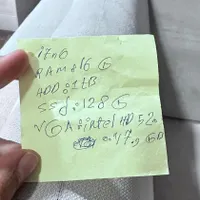 i7n6
RAM:16 G
HDD:1TB
SSd:128 G
VGA:intel HD 52